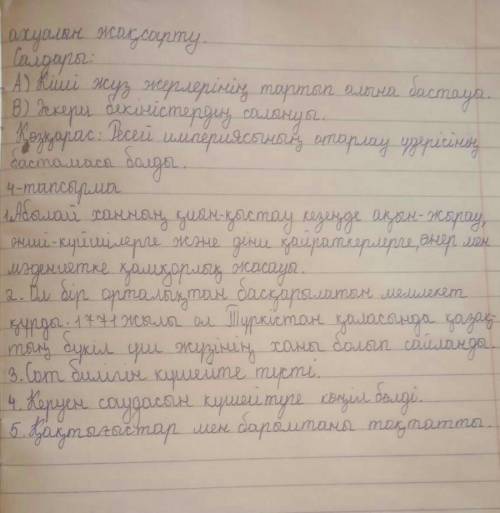 ахуалын жақсарту.
Салдары:
А) Кіші жүз жерлерінің тартып алына бастауы.
В) Әскери бекіністердің салынуы.
Көзқарас: Ресей империясының отарлау үдерісінің
бастамасы болды.
4-тапсырма
1. Абылай ханның қиын-қыстау кезеңде ақын-жырау,
әнші-күйшілерге және діни қайраткерлерге, өнер мен
мәдениетке қамқорлық жасауы.
2. Ол бір орталықтан басқарылатын мемлекет
құрды. 1771 жылы ол Түркістан қаласында қазақ-
тың бүкіл үш жүзінің ханы болып сайланды.
3. Сот билігін күшейте түсті.
4. Керуен саудасын күшейтуге көңіл бөлді.
5. Қақтығыстар мен барымтаны тоқтатты.